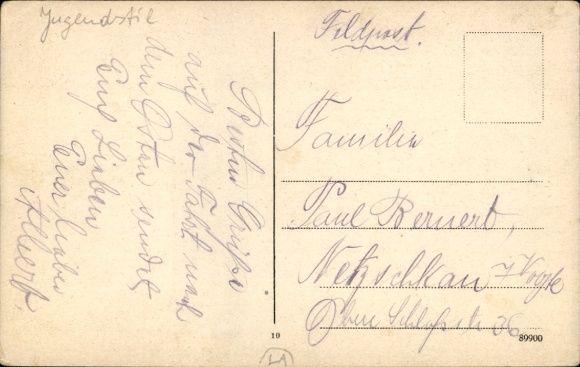 Jugendstil
Beste Grüße
auf der Fahrt nach
dem Osten sendet
Euch Lieben
Euer lieber
Albert.
Feldpost.
Familie
Paul Bernert,
Netzschkau i/Vogtl
Obere Schloßstr 36
10
89900